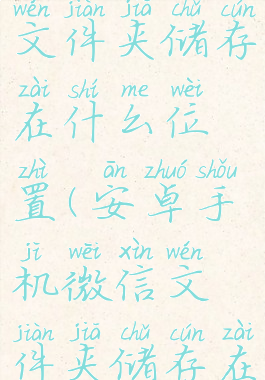 wén jiàn jiā chǔ cún
文件夹储存
zài shí me wèi
在什么位
zhì ān zhuó shǒu
置(安卓手
jī wēi xìn wén
机微信文
jiàn jiā chǔ cún zài
件夹储存在